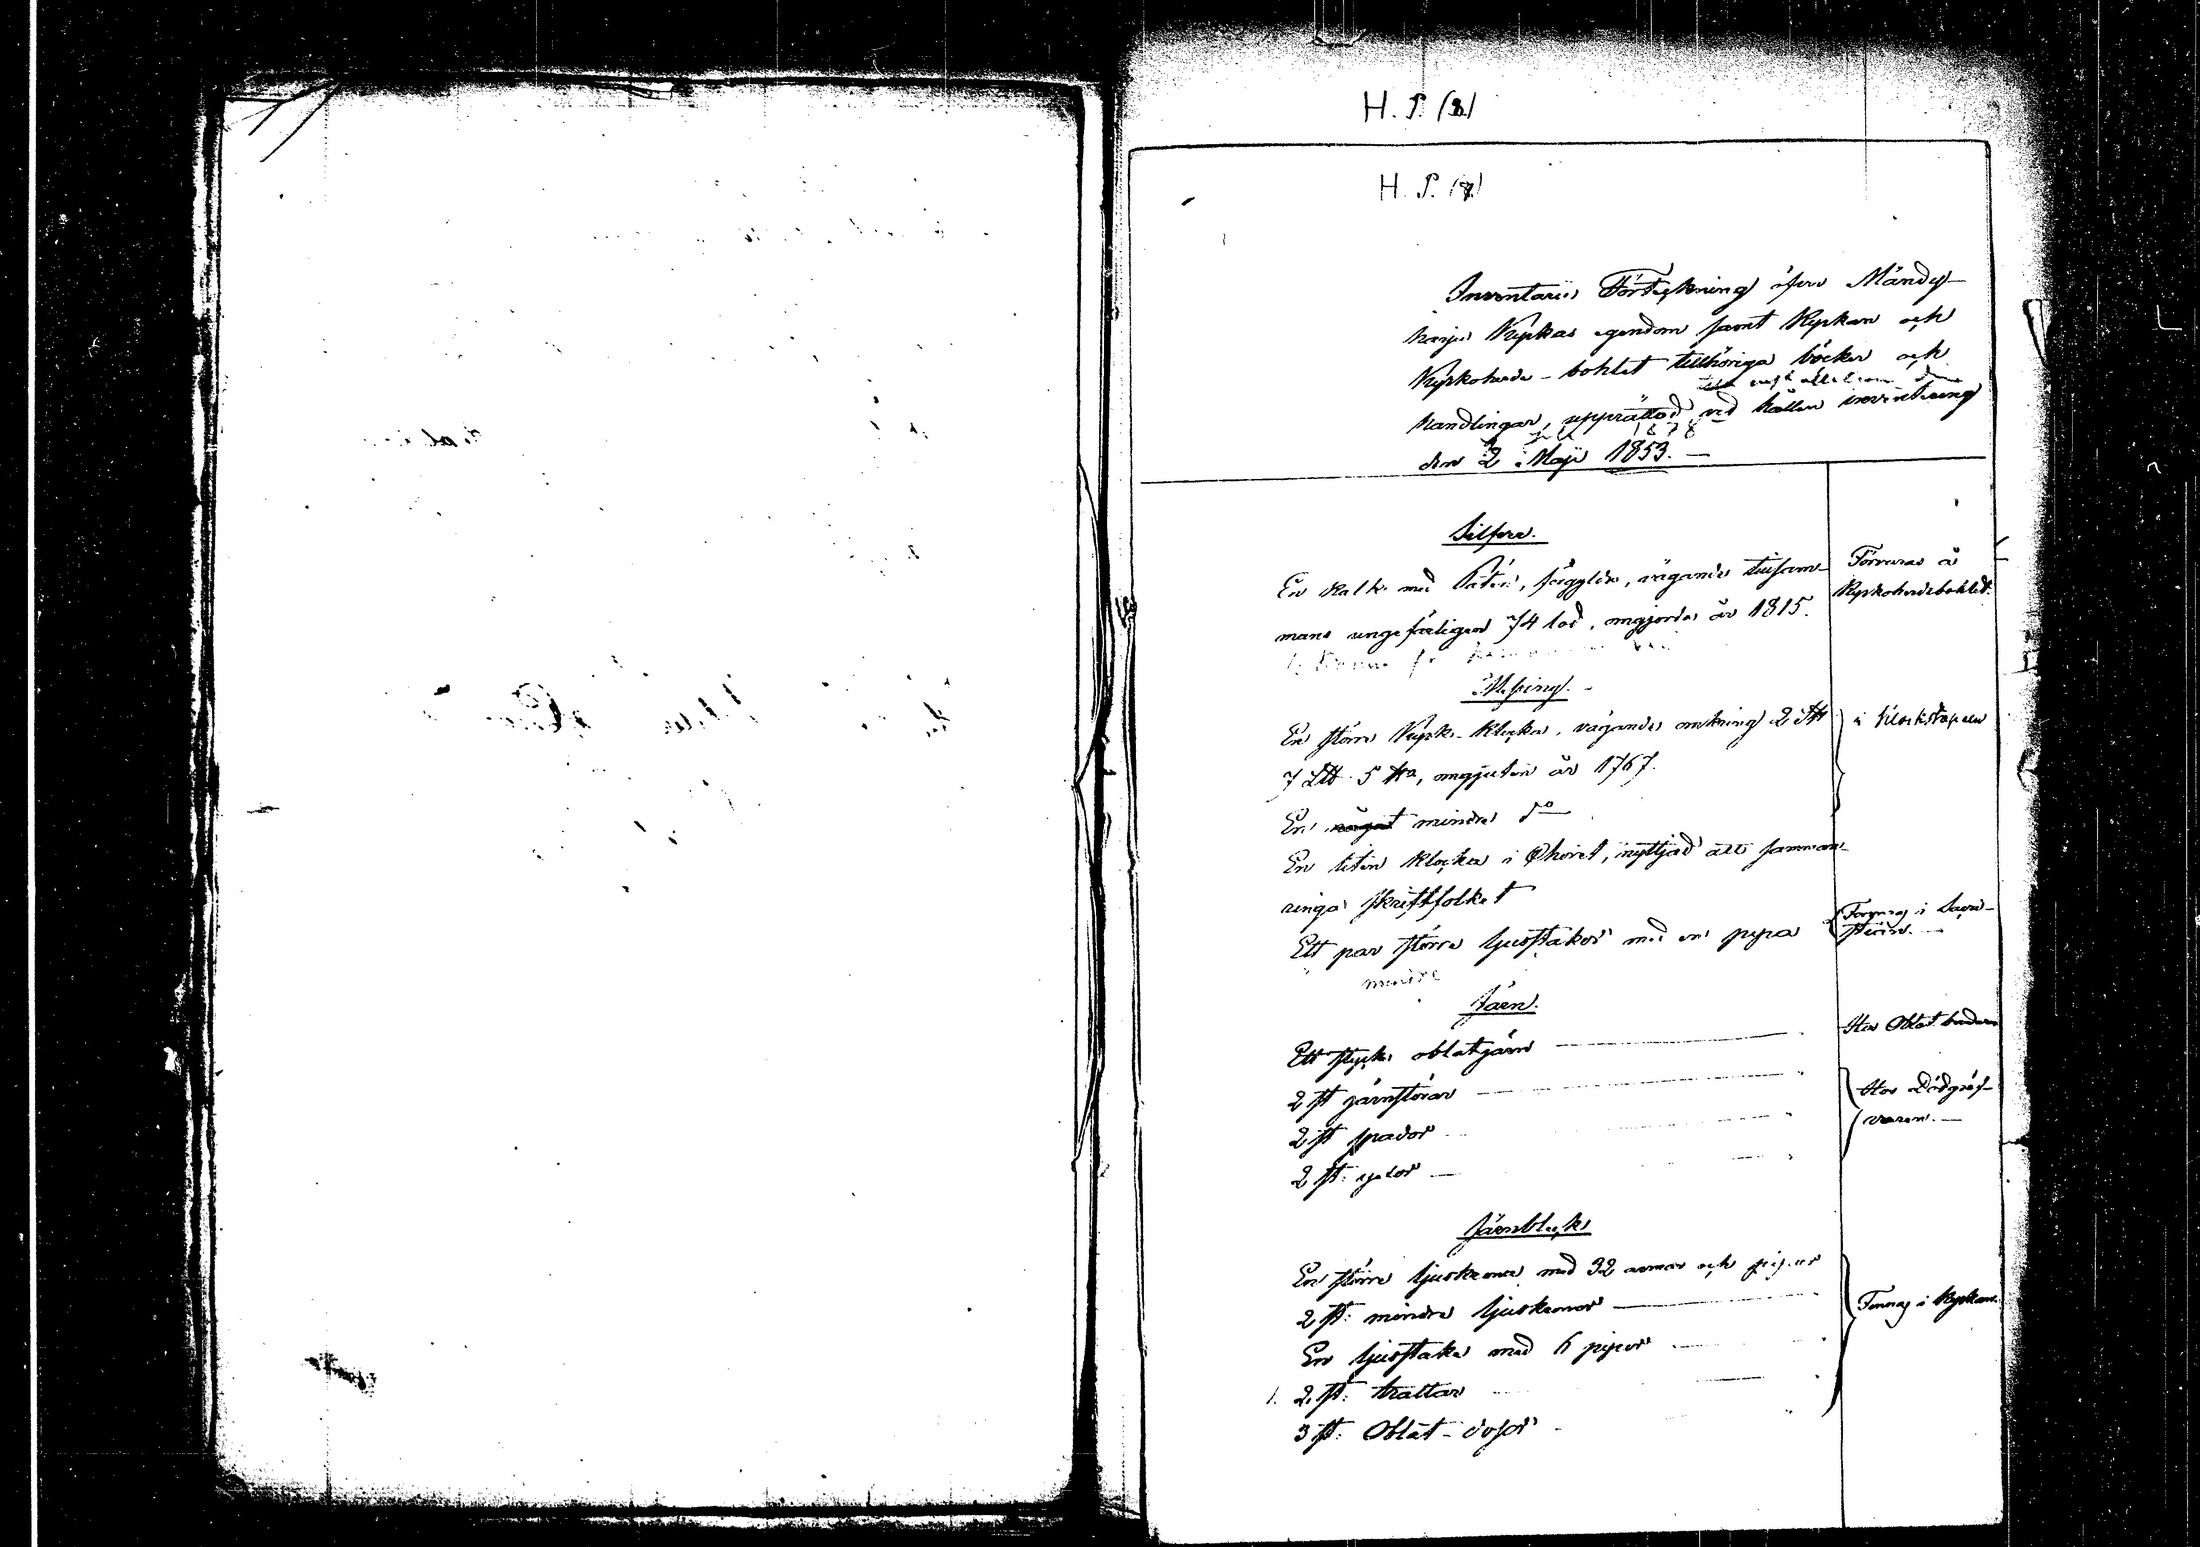 H. P. (8)
H. P. (7)
Inventarii Förteckning öfver Mändy-
harju Kyrkas egendom samt Kyrkan och
Kyrkoherde-bohlet tillhöriga böcker och
handlingar, upprättad vid hållen inventering
1878
den 2 Maji 1853.
Silfver.
En kalk med Patén, förgylde, vägande tillsam- Förvaras å
mans ungefärligen 74 lod, omgjorde år 1815. Kyrkoherdebohlet.
Messing.
En större Kyrk-klocka, vägande omkring 2 S℔ i klockstapeln
7 L℔ 5 ℔, omgjuten år 1767.
En något mindre do
En liten klocka i Choret, nyttjad att samman-
ringa skriftfolket
Ett par större ljusstakar med en pipa Förvaras i Sacri-
stian.
mindre
Järn.
Ett stycke oblatjärn Hos Oblat
2 st järnstörar Hos Dödgräf-
2 st spador varen.
2 st:
Järnbleck
En större ljuskrona med 32 armar och pipor
2 st: mindre ljuskronor Finnas i Kyrkan.
En ljusstake med 6 pipor
1. 2 st: trattar
3 st: Oblat-dosor